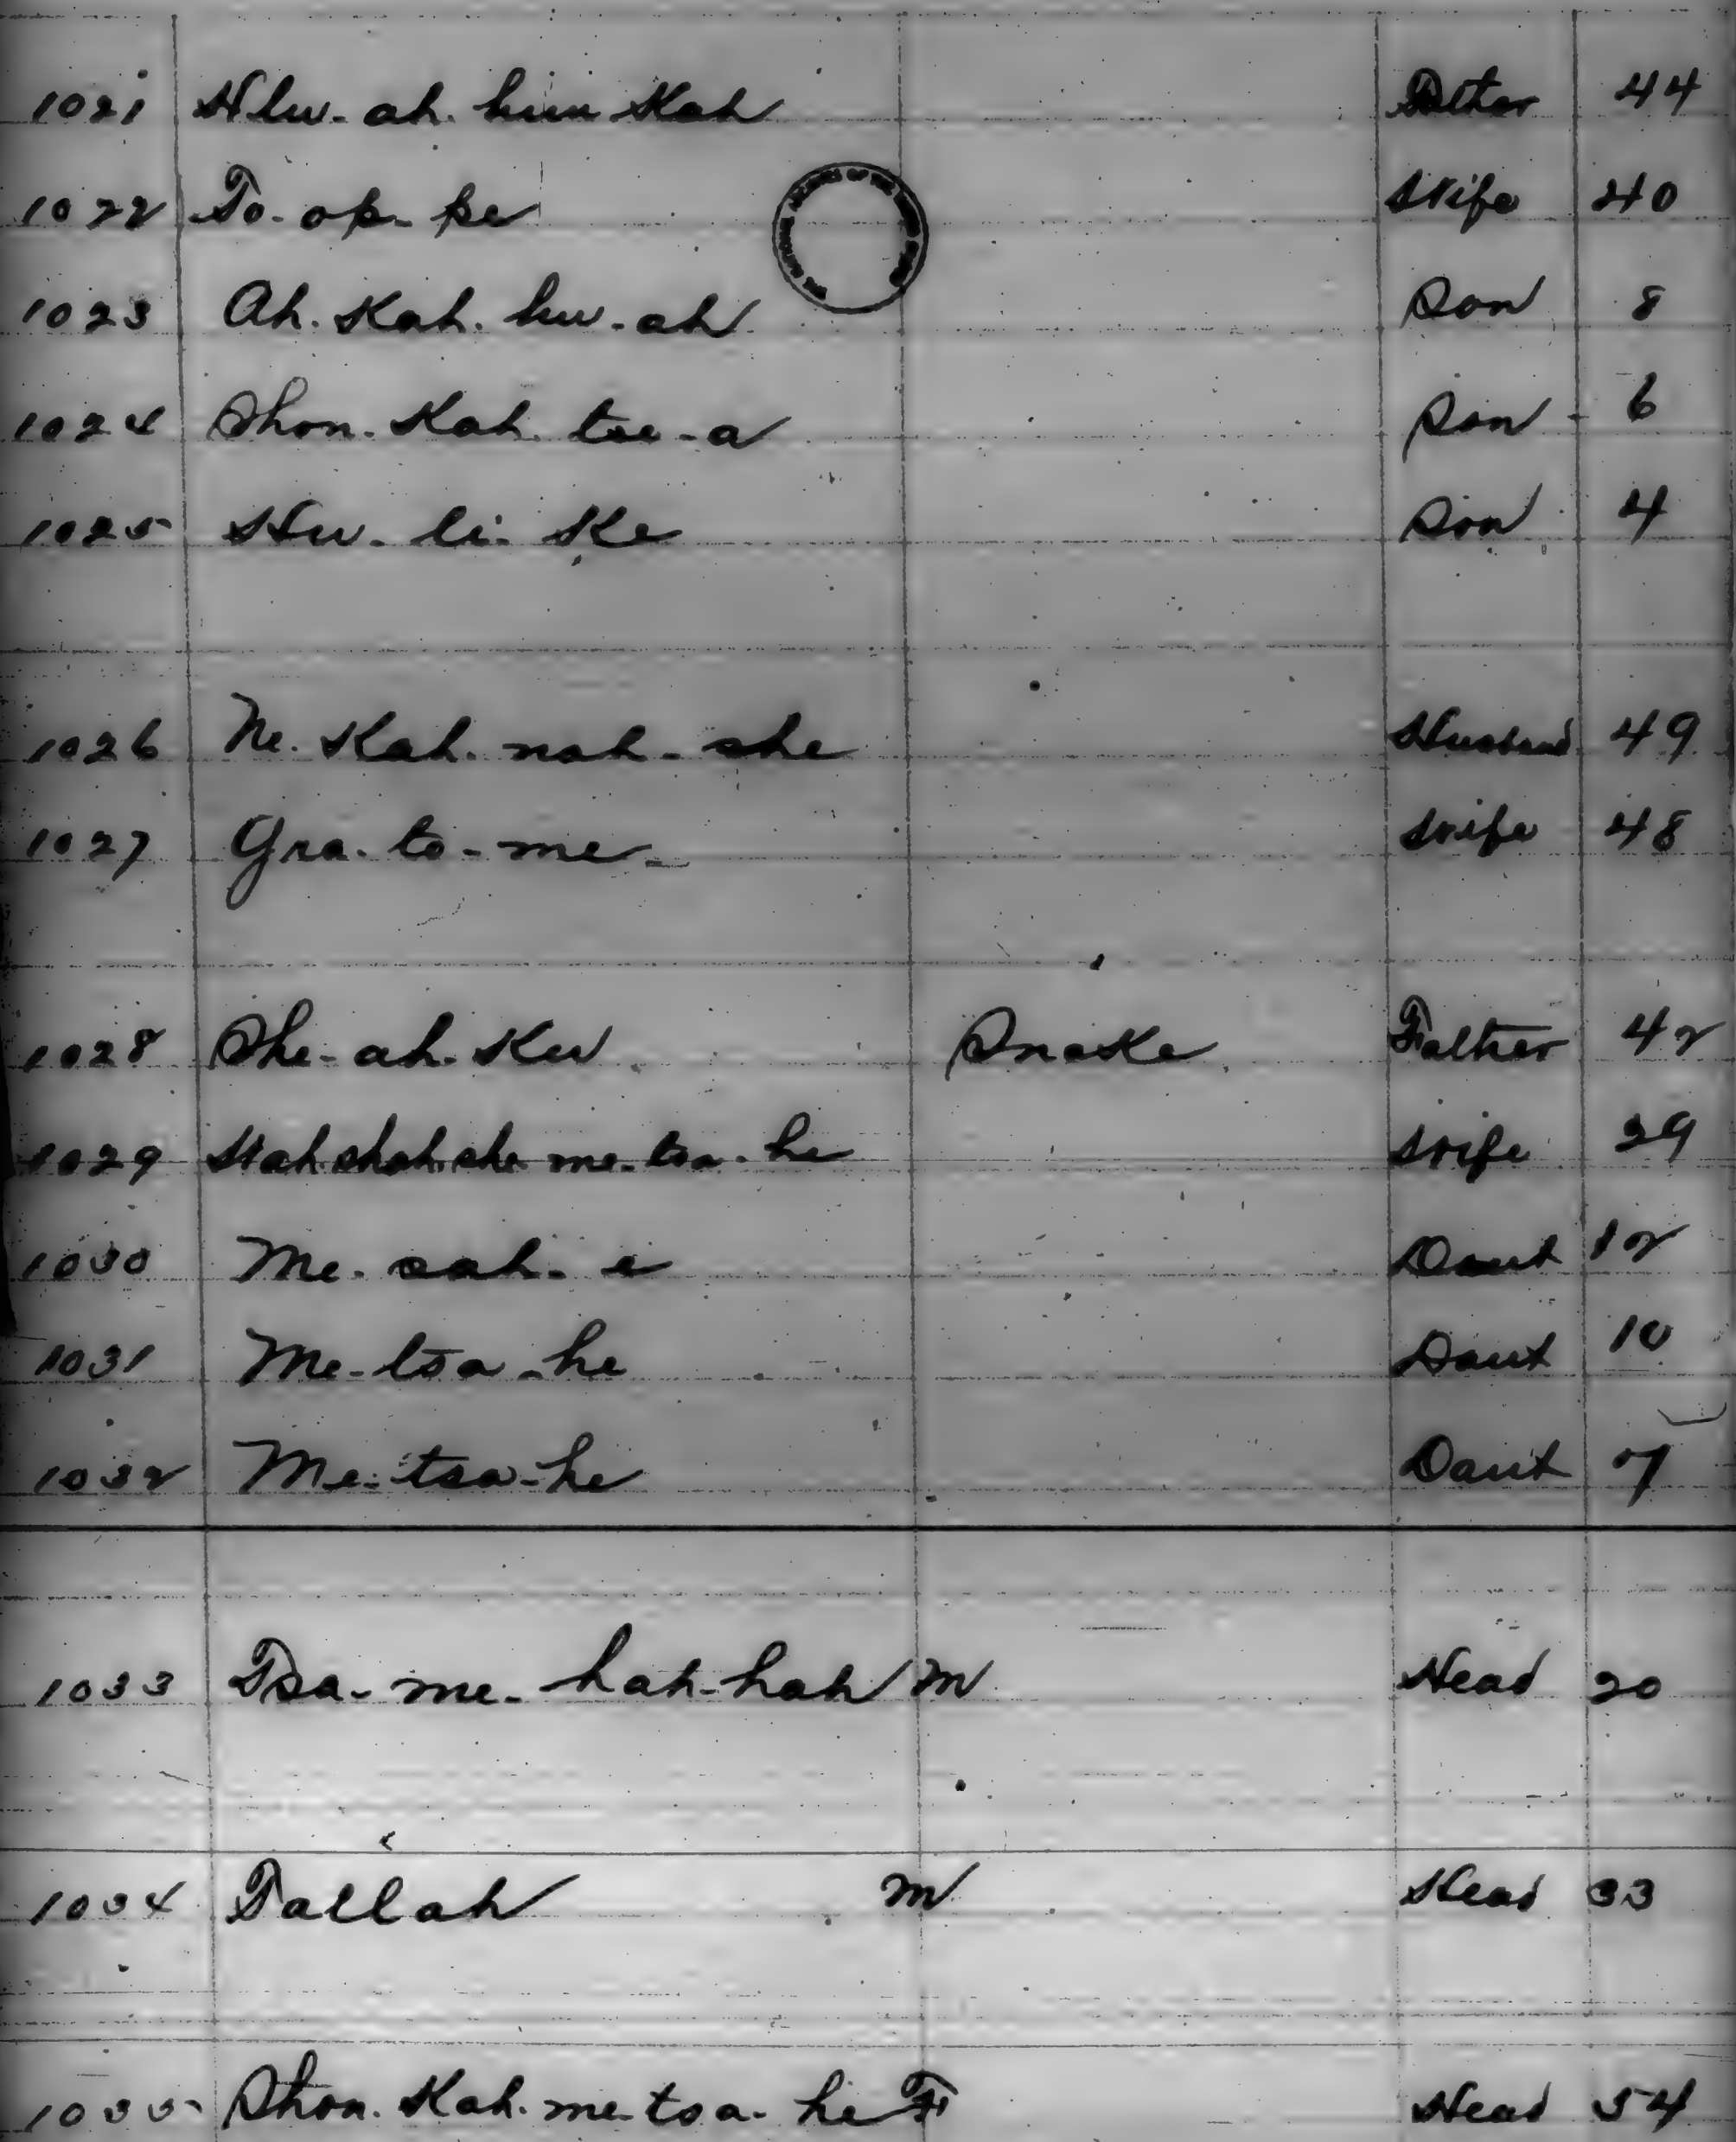 1021 Hlu-ah-hun Kah Father 44
1022 To-op-pe Wife 40
1023 Ah-Kah-hu-ah Son 8
1024 Shon-Kah-tse-a Son 6
1025 Hu-li-Ke Son 4
1026 Ne-Kah-nah-she Husband 49
1027 Gra-to-me Wife 48
1028 She-ah-Ku Snake Father 42
1029 Wah shah she me-tsa-he Wife 29
1030 Me-sah-e Daut 12
1031 Me-tsa-he Daut 10
1032 Me-tsa-he Daut 7
1033 Tsa-me-hah-hah M Head 20
1034 Tallah M Head 33
1035 Shon-Kah-me-tsa-he F Head 54